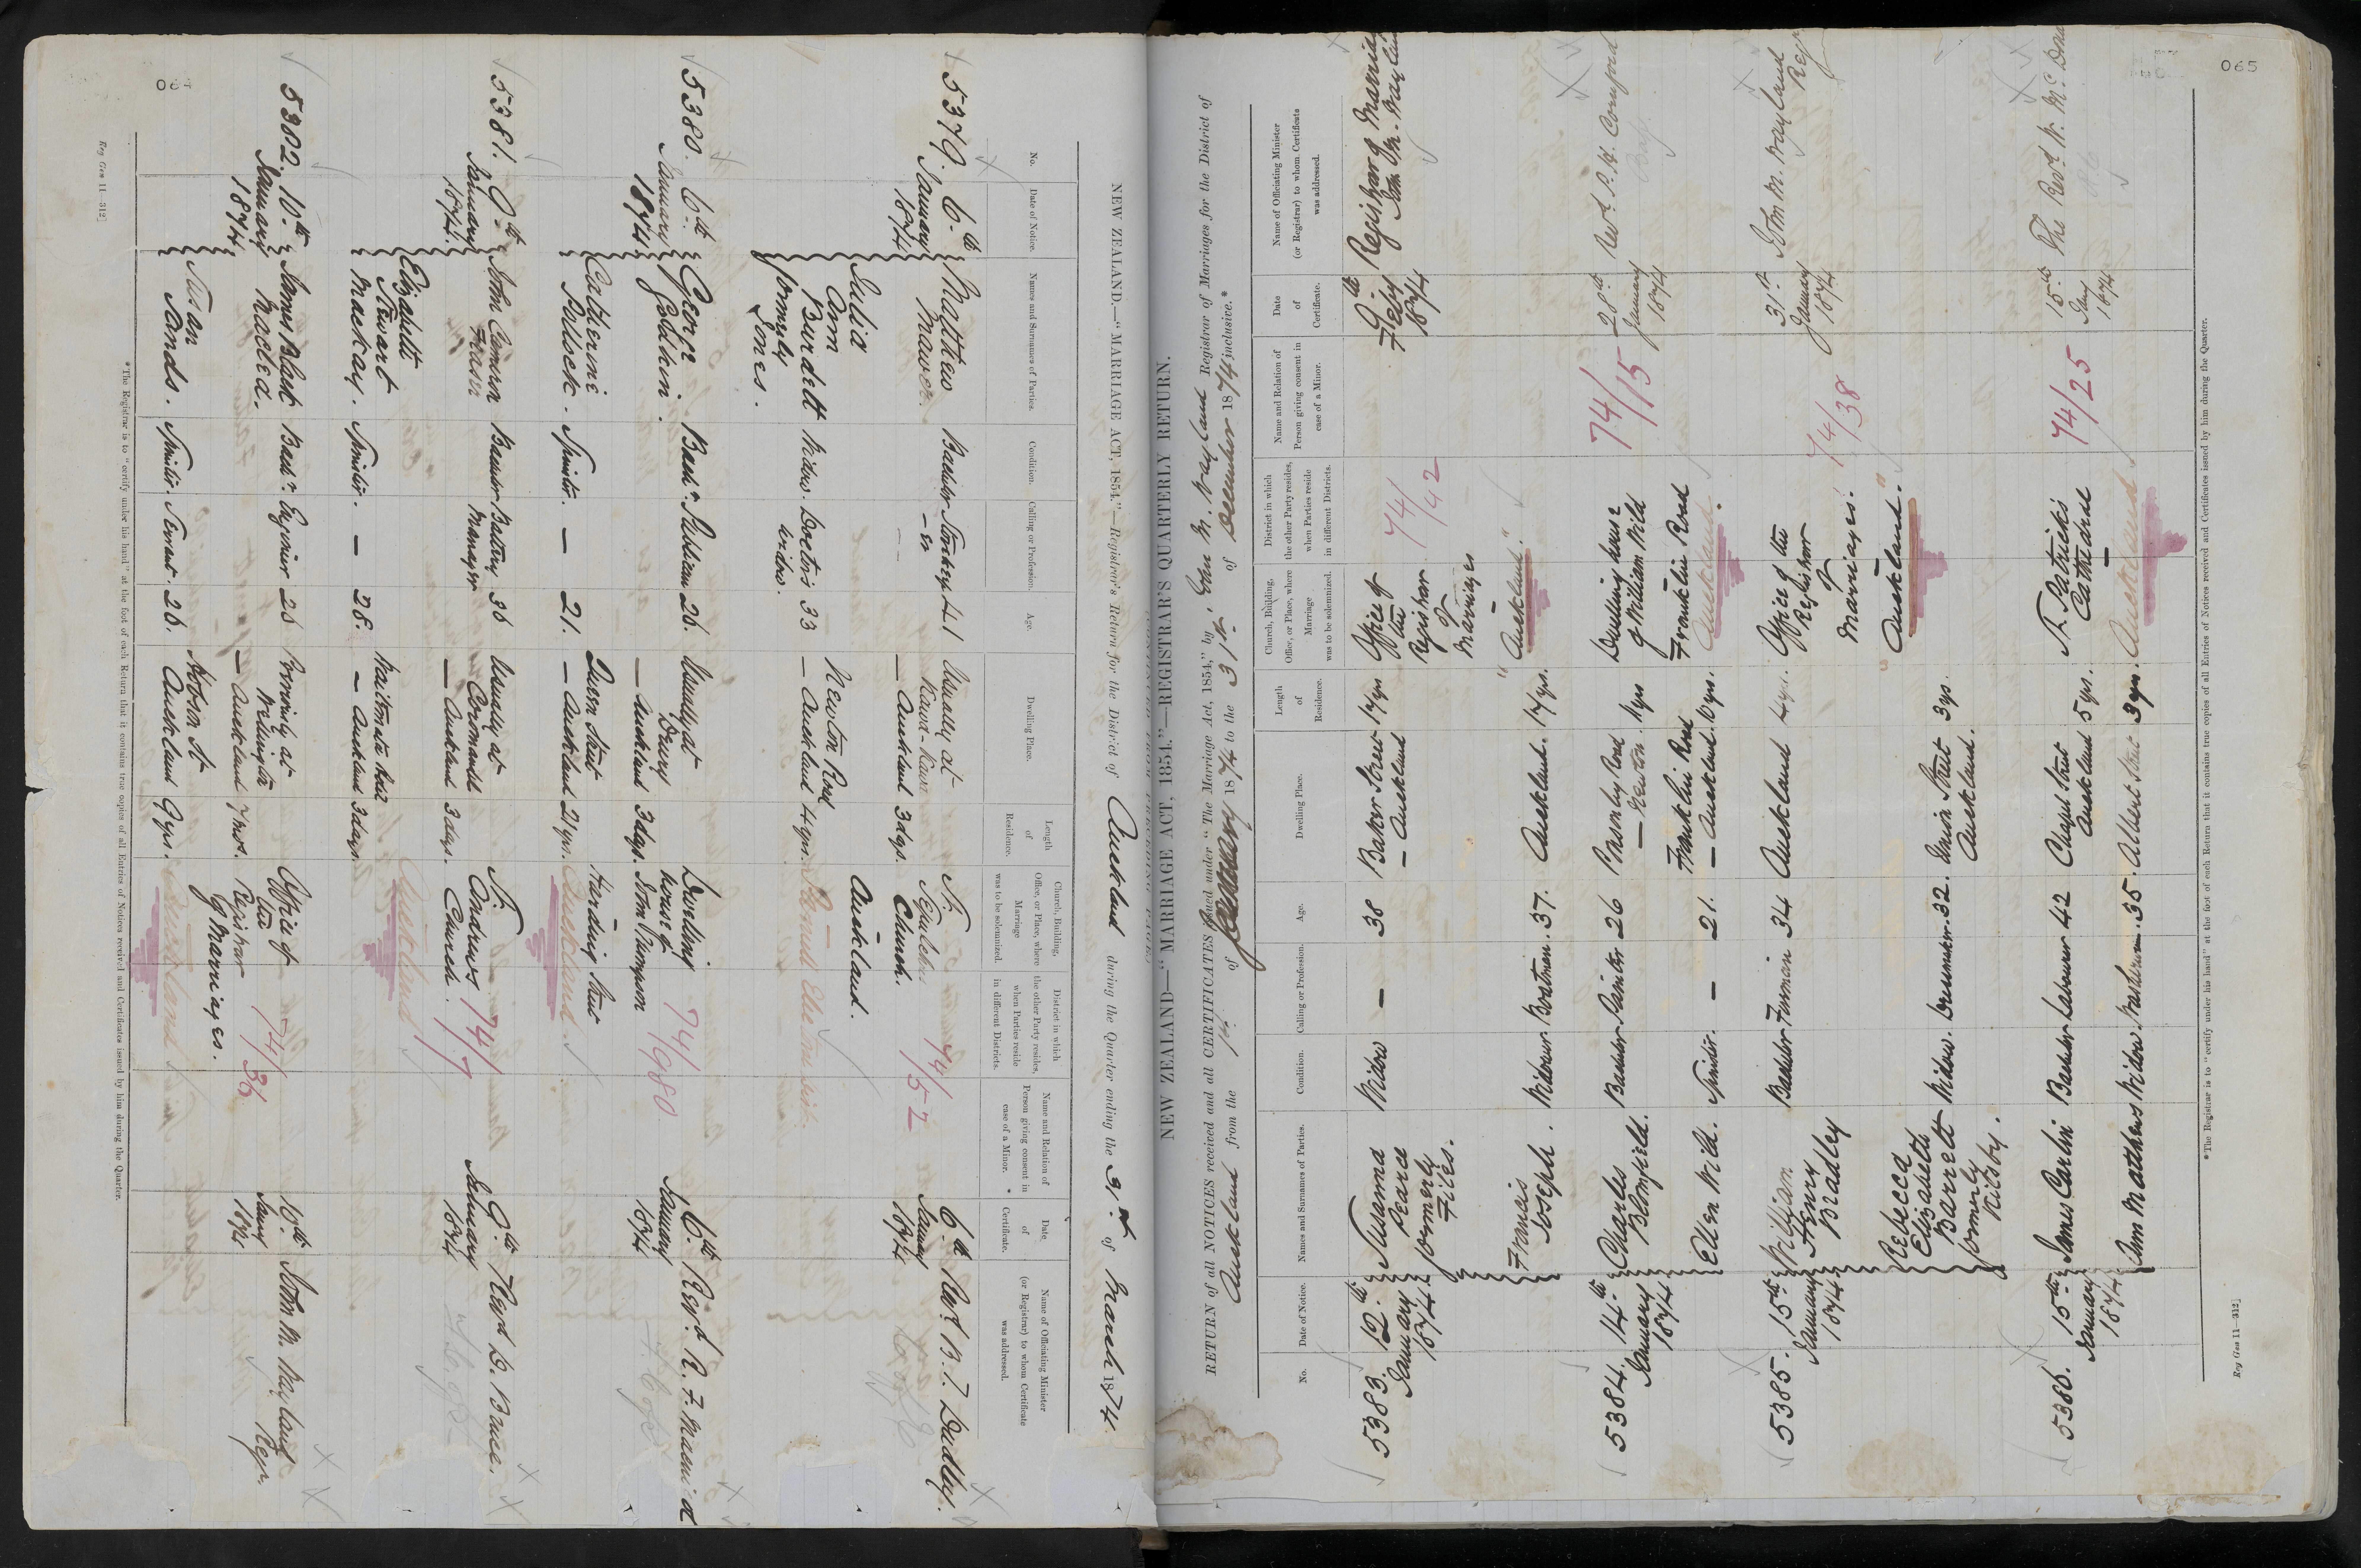 064
NEW ZEALAND.—"MARRIAGE ACT, 1854."—Registrar's Return for the District of Auckland during the Quarter ending the 31st of March 1874.
No. Date of Notice. Names and Surnames of Parties. Condition. Calling or Profession. Age. Dwelling Place. Length of Residence. Church, Building, Office, or Place, where Marriage was to be solemnized. District in which the other Party resides, when Parties reside in different Districts. Name and Relation of Person giving consent in case of a Minor. Date of Certificate. Name of Officiating Minister (or Registrar) to whom Certificate was addressed.
5379. 6th January 1874
Matthew Mawer. Bachelor 41 Usually at
Auckland 3 dys.
St. Church. 74/57
6th January 1874 Revd. B. T. Dudley.
Julia Ann Burdett formerly Jones. Widow. Doctor's widow. 33 Newton Road
— Auckland 4 yrs.
Auckland.
5380. 6th January 1874
George Godkin. Bachr. Publican 26. Usually at Drury
— Auckland 3 days.
Dwelling house of John Thompson 74/980
6th January 1874 Revd. R. F.
Catherine Pollock. Spinster. — 21. Queen Street
— Auckland 21 yrs.
Harding Street
Auckland
5381. 9th January 1874.
John Cameron Fraser Bachelor Battery Manager 36 Usually at Coromandel
— Auckland 3 days.
St. Andrews Church. 74/7
9th January 1874 Revd D. Bruce.
Elizabeth Stewart Mackay. Spinster. — 28. Waitemata Hotel
— Auckland 3 days.
Auckland
5382. 10th January 1874
James Black Maclea. Bachr. Engineer 26 Formerly at Wellington
— Auckland 7 mos.
Office of the Registrar of Marriages. 74/36
10th Jany 1874 John M. Wayland Regr.
Susan Sands. Spinster. Servant. 26. Hobson St
Auckland 9 yrs.
Auckland
*The Registrar is to "certify under his hand" at the foot of each Return that it contains true copies of all Entries of Notices received and Certificates issued by him during the Quarter.
Reg Gen 11—312]
065
NEW ZEALAND—"MARRIAGE ACT, 1854."—REGISTRAR'S QUARTERLY RETURN.
RETURN of all NOTICES received and all CERTIFICATES issued under "The Marriage Act, 1854," by John M. Wayland Registrar of Marriages for the District of
Auckland from the 1st of January 1874 to the 31st of December 1874 inclusive.*
No. Date of Notice. Names and Surnames of Parties. Condition. Calling or Profession. Age. Dwelling Place. Length of Residence. Church, Building, Office, or Place, where Marriage was to be solemnized. District in which the other Party resides, when Parties reside in different Districts. Name and Relation of Person giving consent in case of a Minor. Date of Certificate. Name of Officiating Minister (or Registrar) to whom Certificate was addressed.
5383. 12th January 1874
Susanna Pearce formerly Files. Widow — 38 Baker Street
— Auckland 17 yrs
Office of the Registrar of Marriages 74/42
9th Feby 1874 Registrar of
Francis Joseph. Widower Boatman. 37. Auckland. 17 yrs.
"Auckland."
5384. 14th January 1874
Charles Blomfield. Bachelor Painter 26 Ponsonby Road
— Newton. 11 yrs
Dwelling house of William Wild 74/15
28th January 1874 Revd. P. H. Cornford
Ellen Wild. Spinster. — 21. Franklin Road
— Auckland. 10 yrs.
Franklin Road
Auckland.
5385. 15th January 1874
William Henry Bradley Bachelor Fireman 34 Auckland 4 yrs.
Office of the Registrar of Marriages. 74/38
31st January 1874 John M. Wayland Regr
Rebecca Elizabeth Barrett formerly Kilsby. Widow. Dressmaker. 32. Union Street Auckland. 3 yrs.
"Auckland."
5386. 15th January 1874
James Carlin Bachelor Labourer 42 Chapel Street Auckland 5 yrs.
St. Patrick's Cathedral 74/25
15th Jany 1874 The Revd. W.
Ann Matthews Widow. Washerwn. 35. Albert Street 3 yrs.
Auckland
*The Registrar is to "certify under his hand" at the foot of each Return that it contains true copies of all Entries of Notices received and Certificates issued by him during the Quarter.
Reg Gen 11—312]